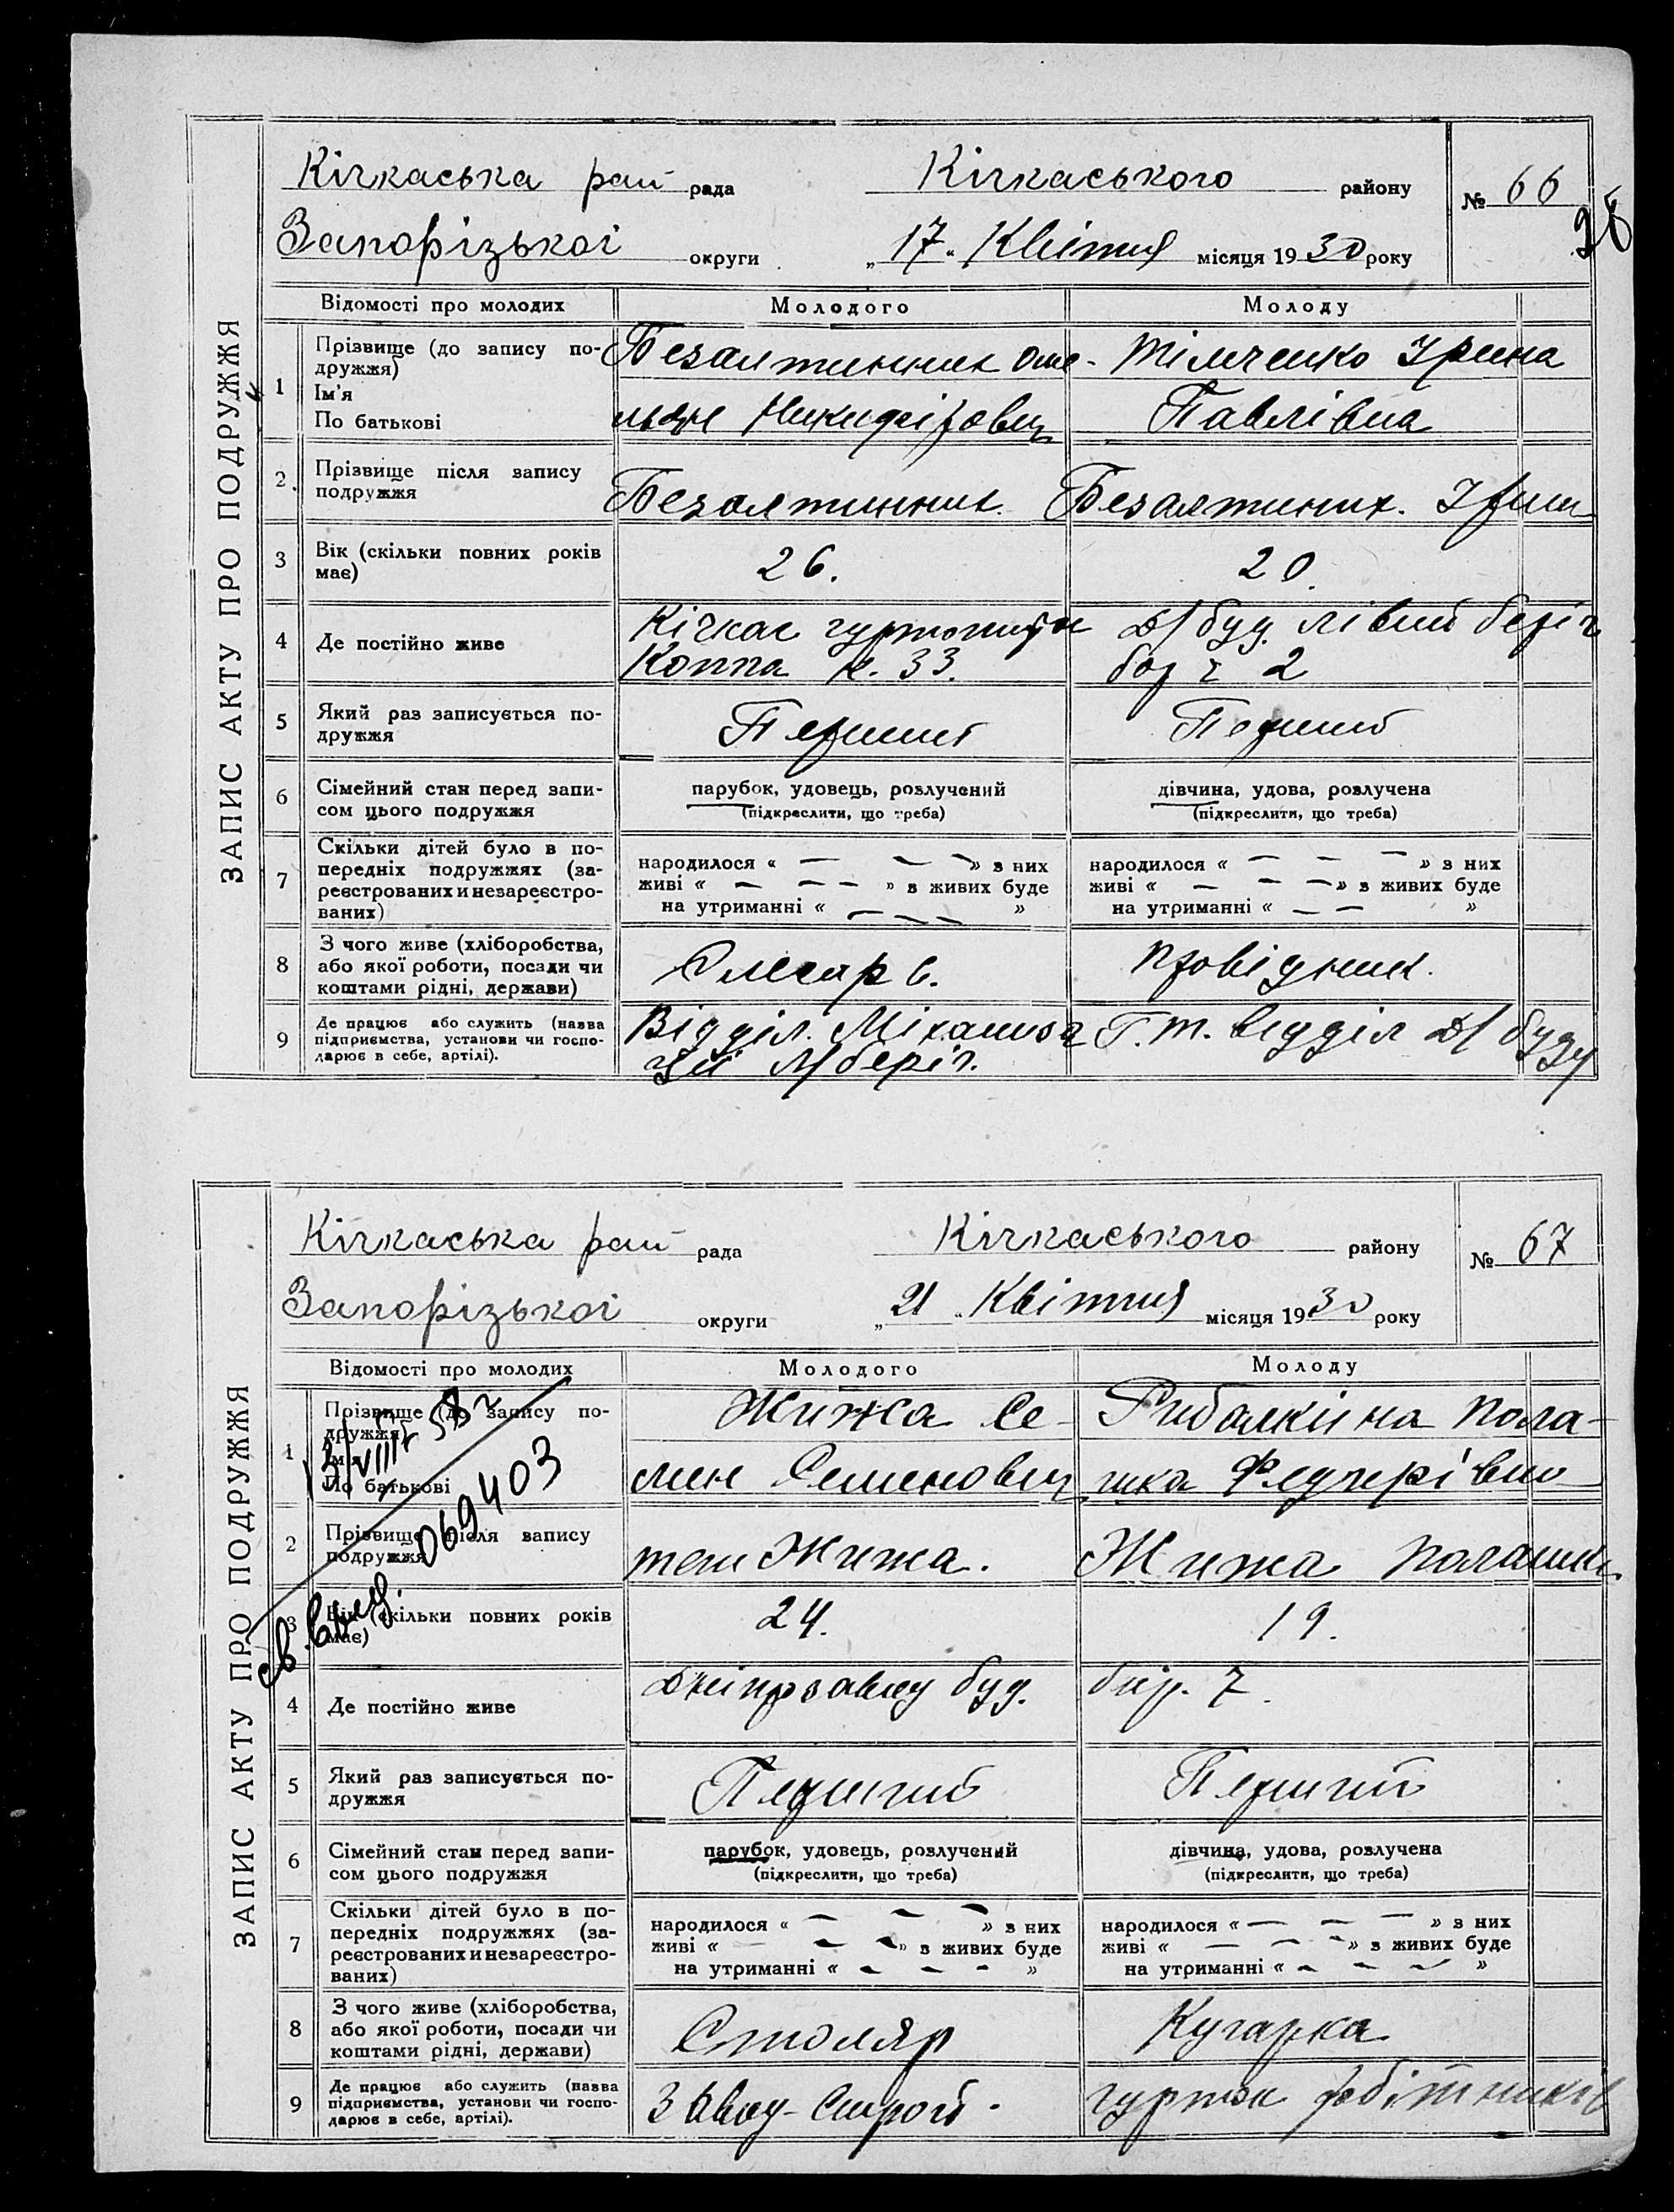 ЗАПИС АКТУ ПРО ПОДРУЖЖЯ
Кічкаська рай рада Кічкаського району № 66
28
Запорізької округи „17“ Квітня місяця 1930 року
Відомості про молодих Молодого Молоду
1 Прізвище (до запису подружжя) Ім'я По батькові
Безалтинник Оме- Тімченко Ірина
льян Никифірович Павлівна
2. Прізвище після запису подружжя
Безалтинник. Безалтиник. Ірина
3 Вік (скільки повних років має) 26. 20.
4 Де постійно живе
Кічкас гуртожиток Д/буд. лівий беріг
Коппа к. 33. бар ч 2
5 Який раз записується подружжя Перший Перший
6 Сімейний стан перед записом цього подружжя
парубок, удовець, розлучений дівчина, удова, розлучена
(підкреслити, що треба) (підкреслити, що треба)
7 Скільки дітей було в попередніх подружжях (зареєстрованих и незареєстрованих)
народилося « — — — » з них народилося « — — — » з них
живі « — — — » з живих буде живі « — — — » з живих буде
на утриманні « — — — » на утриманні « — — »
8 З чого живе (хліборобства, або якої роботи, посади чи коштами рідні, держави)
Слюсарь. провідник.
9 Де працює або служить (назва підприємства, установи чи господарює в себе, артілі).
Відділ. Міханіза Г.т. відділ Д/буду
ції Л/беріг.
ЗАПИС АКТУ ПРО ПОДРУЖЖЯ
Кічкаська рай рада Кічкаського району № 67
Запорізької округи „21“ Квітня місяця 1930 року
Відомості про молодих Молодого Молоду
1 Прізвище (до запису подружжя) Ім'я По батькові
Жижа Се- Рибалкіна Пола-
мен Семенович жка Федчерівно
13/VIII 58 г
св. выд. 069403
2 Прізвище після запису подружжя
теш Жижа. Жижа Палашк.
3 Вік (скільки повних років має) 24. 19.
4 Де постійно живе
Дніпрзавод буд. бар. 7.
5 Який раз записується подружжя Перший Перший
6 Сімейний стан перед записом цього подружжя
парубок, удовець, розлучений дівчина, удова, розлучена
(підкреслити, що треба) (підкреслити, що треба)
7 Скільки дітей було в попередніх подружжях (зареєстрованих и незареєстрованих)
народилося « — — — » з них народилося « — — — » з них
живі « — — — » з живих буде живі « — — — » з живих буде
на утриманні « — — — » на утриманні « — — — »
8 З чого живе (хліборобства, або якої роботи, посади чи коштами рідні, держави)
Столяр Кухарка
9 Де працює або служить (назва підприємства, установи чи господарює в себе, артілі).
Завод-Строй. гуртож робітників